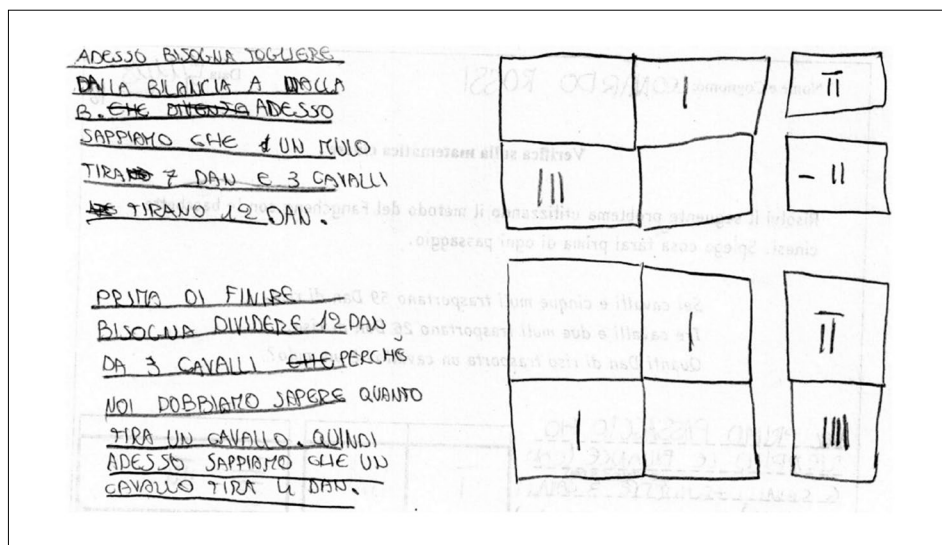 ADESSO BISOGNA TOGLIERE
DALLA BILANCIA A DALLA
B. CHE DIVENTA ADESSO
SAPPIAMO CHE UN MULO
TIRA 7 DAN E 3 CAVALLI
TIRANO 12 DAN.
PRIMA DI FINIRE
BISOGNA DIVIDERE 12 DAN
DA 3 CAVALLI CHE PERCHÉ
NOI DOBBIAMO SAPERE QUANTO
TIRA UN CAVALLO. QUINDI
ADESSO SAPPIAMO CHE UN
CAVALLO TIRA 4 DAN.